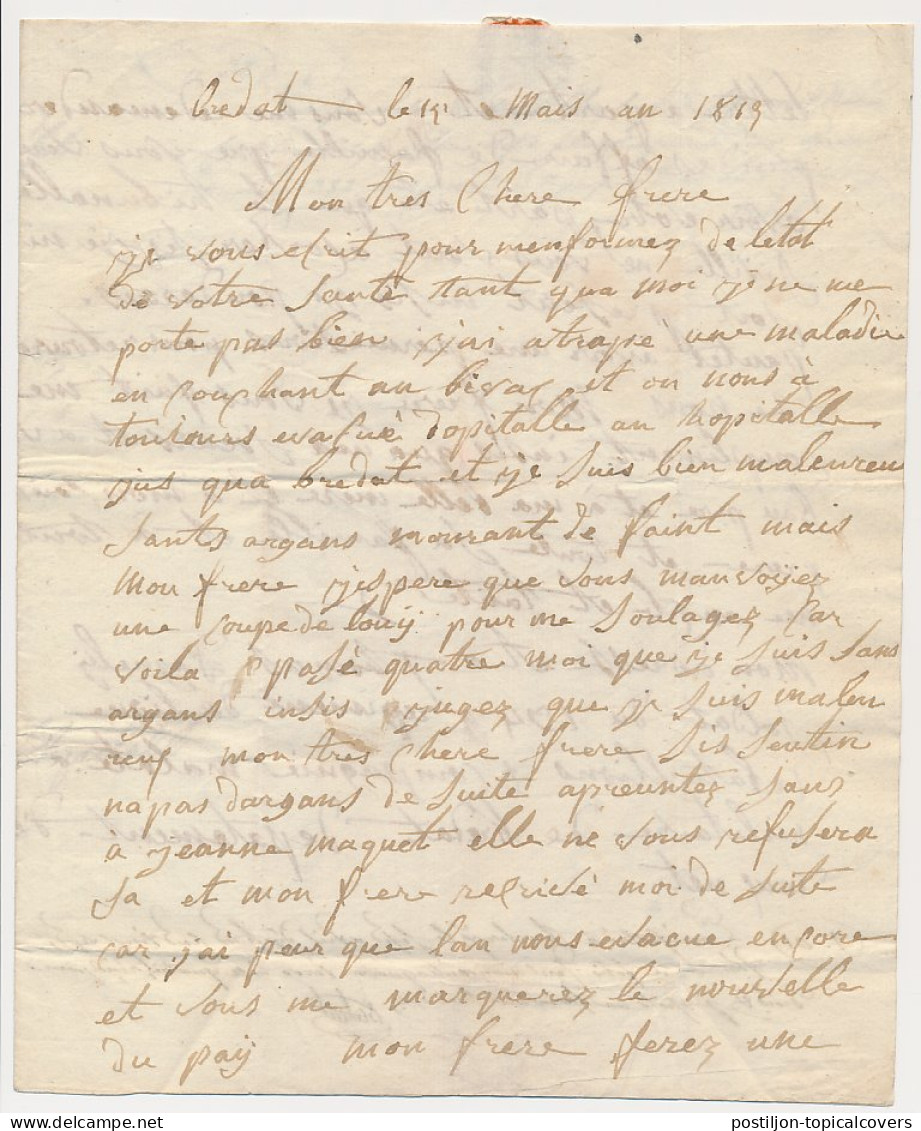 bredat le 15 Mais an 1813
Mon tres Chere frere
je vous ecrit pour menformez de letat
de votre Santé ttant qua moi je ne me
porte pas bien jai atrapé une maladie
en Couchant au bivac et on nous à
toujours evacué dopitalle an hopitalle
jus qua bredat et je Suis bien maleureu
Sants argans mourant de faint mais
Mon frere jespere que vous manvoyez
une Coupe de louij pour me Soulagez Car
voila pasé quatre moi que je Suis Sans
argans insis jugez que je Suis maleu
reux mon tres Chere frere Sis Sentin
na pas dargans de Suite apreuntez Sans
à jeanne maquet elle ne vous refusera
Sa et mon frere recrivé moi de Suite
car jai peur que lan nous evacue encore
et vous me marquerez le nouvelle
du paij mon frere ferez une
postiljon-topicalcovers